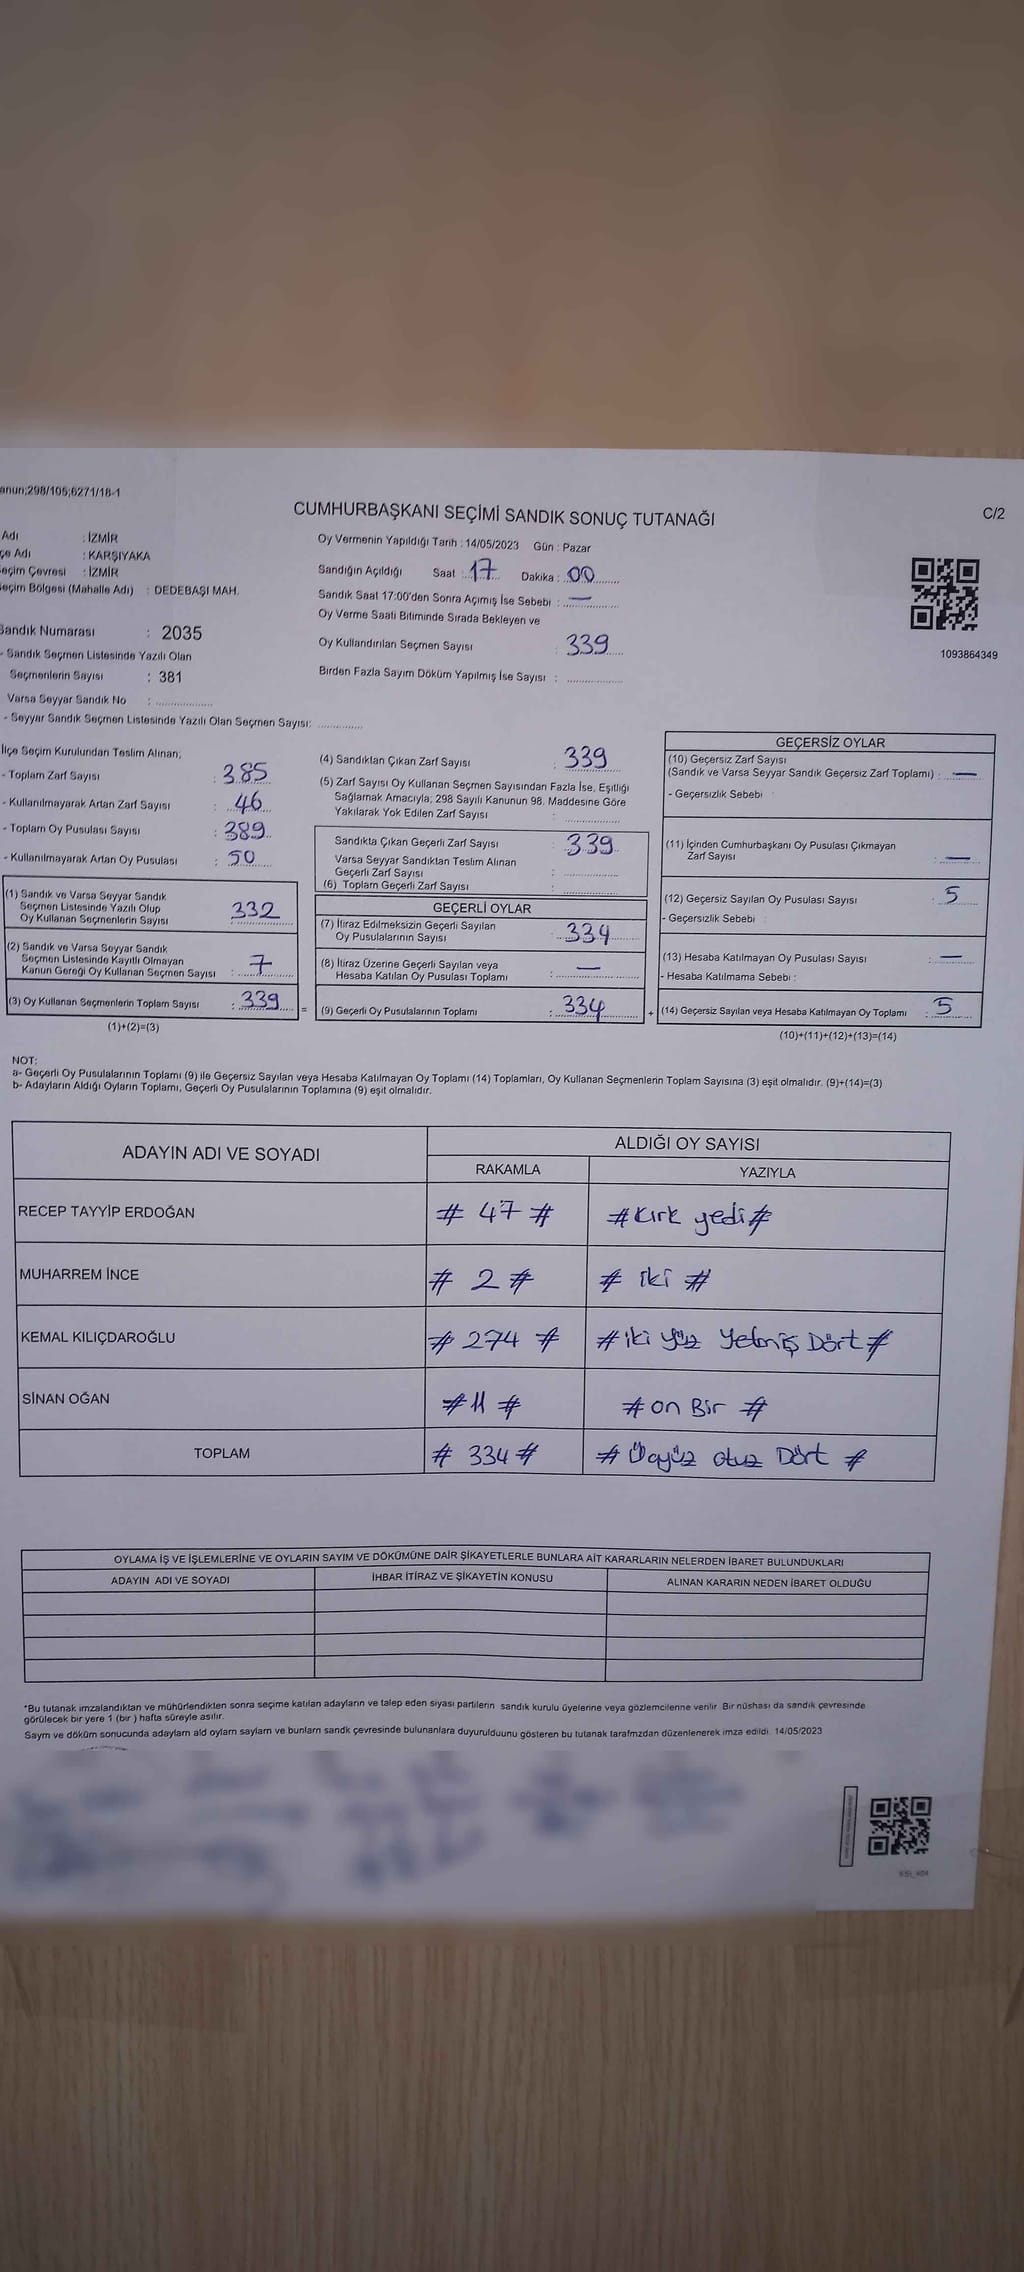 anun;298/105;6271/18-1
CUMHURBAŞKANI SEÇİMİ SANDIK SONUÇ TUTANAĞI
C/2
Adı : İZMİR
çe Adı : KARŞIYAKA
eçim Çevresi : İZMİR
eçim Bölgesi (Mahalle Adı) : DEDEBAŞI MAH.
Sandık Numarası : 2035
- Sandık Seçmen Listesinde Yazılı Olan
Seçmenlerin Sayısı : 381
Varsa Seyyar Sandık No :
- Seyyar Sandık Seçmen Listesinde Yazılı Olan Seçmen Sayısı:
Oy Vermenin Yapıldığı Tarih : 14/05/2023 Gün : Pazar
Sandığın Açıldığı Saat 17 Dakika : 00
Sandık Saat 17:00'den Sonra Açımış İse Sebebi : —
Oy Verme Saati Bitiminde Sırada Bekleyen ve
Oy Kullandırılan Seçmen Sayısı : 339
Birden Fazla Sayım Döküm Yapılmış İse Sayısı :
1093864349
İlçe Seçim Kurulundan Teslim Alınan;
- Toplam Zarf Sayısı : 385
- Kullanılmayarak Artan Zarf Sayısı : 46
- Toplam Oy Pusulası Sayısı : 389
- Kullanılmayarak Artan Oy Pusulası : 50
(1) Sandık ve Varsa Seyyar Sandık
Seçmen Listesinde Yazılı Olup
Oy Kullanan Seçmenlerin Sayısı 332
(2) Sandık ve Varsa Seyyar Sandık
Seçmen Listesinde Kayıtlı Olmayan
Kanun Gereği Oy Kullanan Seçmen Sayısı : 7
(3) Oy Kullanan Seçmenlerin Toplam Sayısı : 339
(1)+(2)=(3)
(4) Sandıktan Çıkan Zarf Sayısı : 339
(5) Zarf Sayısı Oy Kullanan Seçmen Sayısından Fazla İse, Eşitliği
Sağlamak Amacıyla; 298 Sayılı Kanunun 98. Maddesine Göre
Yakılarak Yok Edilen Zarf Sayısı :
Sandıkta Çıkan Geçerli Zarf Sayısı : 339
Varsa Seyyar Sandıktan Teslim Alınan
Geçerli Zarf Sayısı :
(6) Toplam Geçerli Zarf Sayısı :
GEÇERLİ OYLAR
(7) İtiraz Edilmeksizin Geçerli Sayılan
Oy Pusulalarının Sayısı : 334
(8) İtiraz Üzerine Geçerli Sayılan veya
Hesaba Katılan Oy Pusulası Toplamı : —
= (9) Geçerli Oy Pusulalarının Toplamı : 334
GEÇERSİZ OYLAR
(10) Geçersiz Zarf Sayısı
(Sandık ve Varsa Seyyar Sandık Geçersiz Zarf Toplamı) : —
- Geçersizlik Sebebi :
(11) İçinden Cumhurbaşkanı Oy Pusulası Çıkmayan
Zarf Sayısı : —
(12) Geçersiz Sayılan Oy Pusulası Sayısı : 5
- Geçersizlik Sebebi :
(13) Hesaba Katılmayan Oy Pusulası Sayısı : —
- Hesaba Katılmama Sebebi :
+ (14) Geçersiz Sayılan veya Hesaba Katılmayan Oy Toplamı : 5
(10)+(11)+(12)+(13)=(14)
NOT:
a- Geçerli Oy Pusulalarının Toplamı (9) ile Geçersiz Sayılan veya Hesaba Katılmayan Oy Toplamı (14) Toplamları, Oy Kullanan Seçmenlerin Toplam Sayısına (3) eşit olmalıdır. (9)+(14)=(3)
b- Adayların Aldığı Oyların Toplamı, Geçerli Oy Pusulalarının Toplamına (9) eşit olmalıdır.
ADAYIN ADI VE SOYADI
ALDIĞI OY SAYISI
RAKAMLA YAZIYLA
RECEP TAYYİP ERDOĞAN # 47 # # Kırk yedi #
MUHARREM İNCE # 2 # # iki #
KEMAL KILIÇDAROĞLU # 274 # # iki yüz Yetmiş Dört #
SİNAN OĞAN # 11 # # on Bir #
TOPLAM # 334 # # Üçyüz otuz Dört #
OYLAMA İŞ VE İŞLEMLERİNE VE OYLARIN SAYIM VE DÖKÜMÜNE DAİR ŞİKAYETLERLE BUNLARA AİT KARARLARIN NELERDEN İBARET BULUNDUKLARI
ADAYIN ADI VE SOYADI İHBAR İTİRAZ VE ŞİKAYETİN KONUSU ALINAN KARARIN NEDEN İBARET OLDUĞU
*Bu tutanak imzalandıktan ve mühürlendikten sonra seçime katılan adayların ve talep eden siyasi partilerin sandık kurulu üyelerine veya gözlemcilerine verilir. Bir nüshası da sandık çevresinde
görülecek bir yere 1 (bir ) hafta süreyle asılır.
Saym ve döküm sonucunda adaylarn ald oylarn saylarn ve bunlarn sandk çevresinde bulunanlara duyurulduunu gösteren bu tutanak tarafmzdan düzenlenerek imza edildi. 14/05/2023